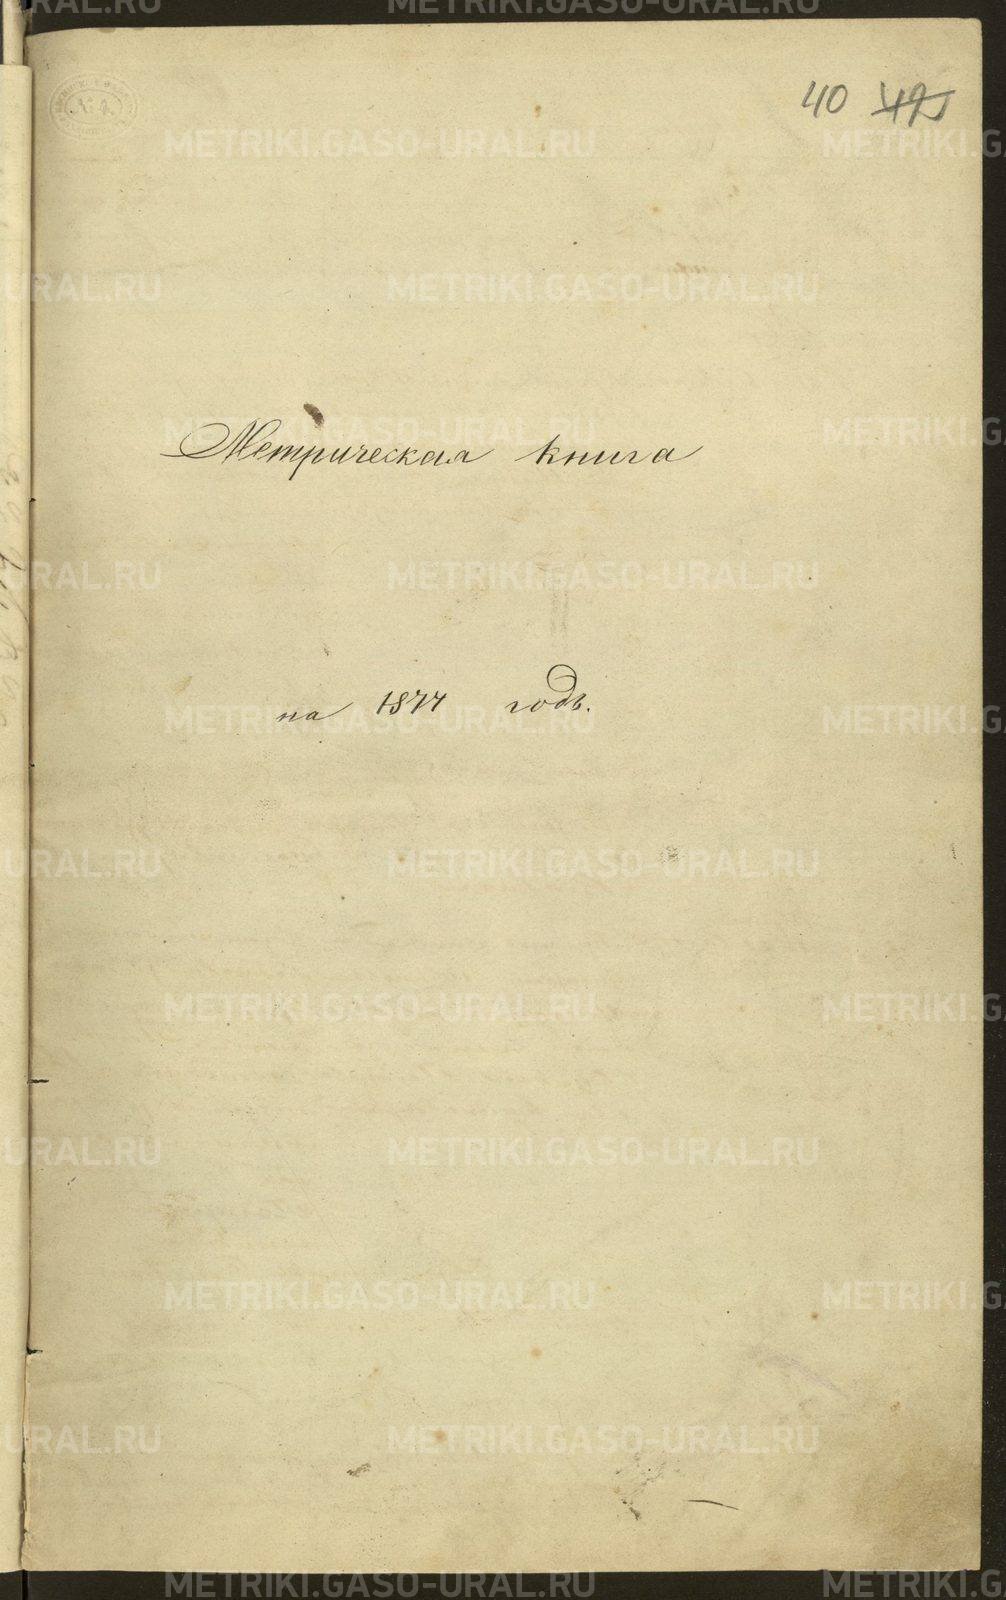 40
Метрическая книга
на 1877 годъ.
METRIKI.GASO-URAL.RU